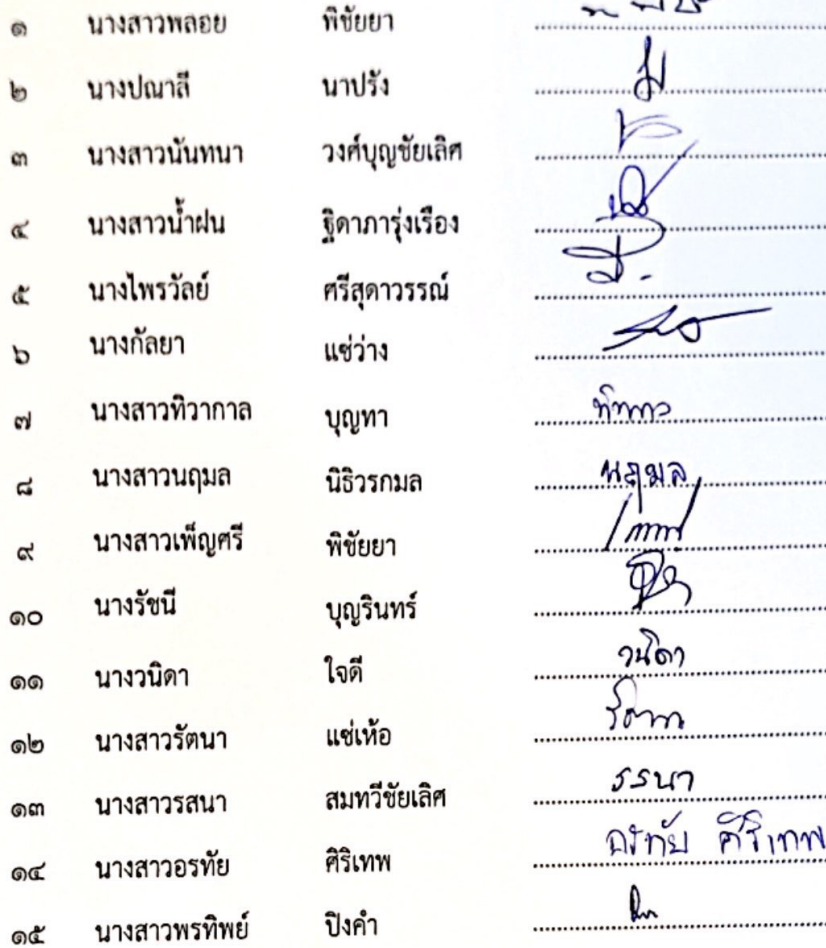 ๑ นางสาวพลอย พิชัยยา
๒ นางปณาลี นาปรัง
๓ นางสาวนันทนา วงศ์บุญชัยเลิศ
๔ นางสาวน้ำฝน ฐิดาภารุ่งเรือง
๕ นางไพรวัลย์ ศรีสุดาวรรณ์
๖ นางกัลยา แซ่ว่าง
๗ นางสาวทิวากาล บุญทา
๘ นางสาวนฤมล นิธิวรกมล นฤมล
๙ นางสาวเพ็ญศรี พิชัยยา
๑๐ นางรัชนี บุญรินทร์
๑๑ นางวนิดา ใจดี วนิดา
๑๒ นางสาวรัตนา แซ่เห้อ
๑๓ นางสาวรสนา สมทวีชัยเลิศ รสนา
๑๔ นางสาวอรทัย ศิริเทพ อรทัย ศิริเทพ
๑๕ นางสาวพรทิพย์ ปิงคำ